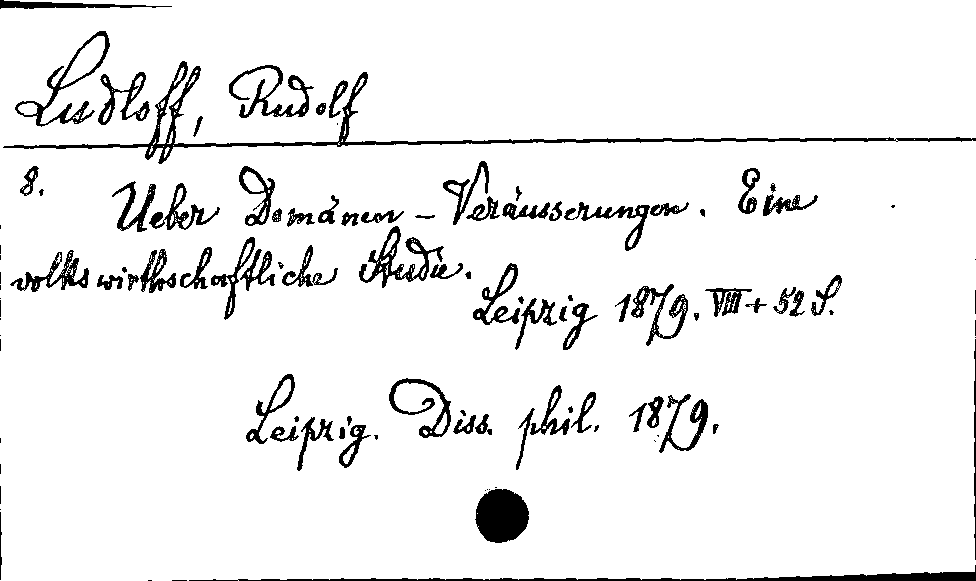 Ludloff, Rudolf
8. Ueber Domänen-Veräusserungen. Eine
volkswirthschaftliche Studie.
Leipzig 1879. VIII + 52 S.
Leipzig. Diss. phil. 1879.